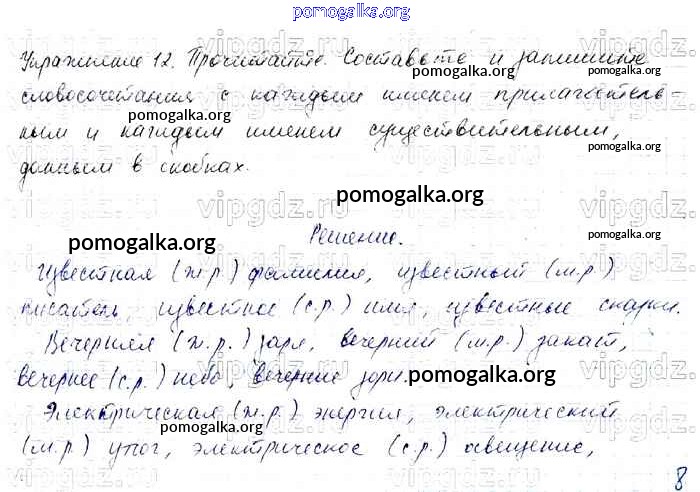 pomogalka.org
Упражнение 12. Прочитайте. Составьте и запишите
pomogalka.org
словосочетания с каждым именем прилагатель-
pomogalka.org
ным и каждым именем существительным,
pomogalka.org
данным в скобках.
pomogalka.org
Решение.
pomogalka.org
Известная (ж.р.) фамилия, известный (м.р.)
писатель, известное (с.р.) имя, известные сказки.
Вечерняя (ж.р.) заря, вечерний (м.р.) закат,
вечернее (с.р.) небо, вечерние зори.
pomogalka.org
Электрическая (ж.р.) энергия, электрический
pomogalka.org
(м.р.) утюг, электрическое (с.р.) освещение,
pomogalka.org
8
vipgdz.ru